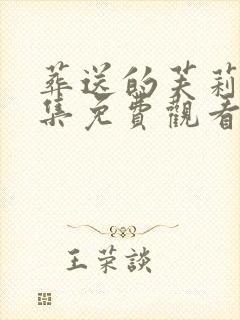 葬送的芙莉
集免費觀看
王荣談